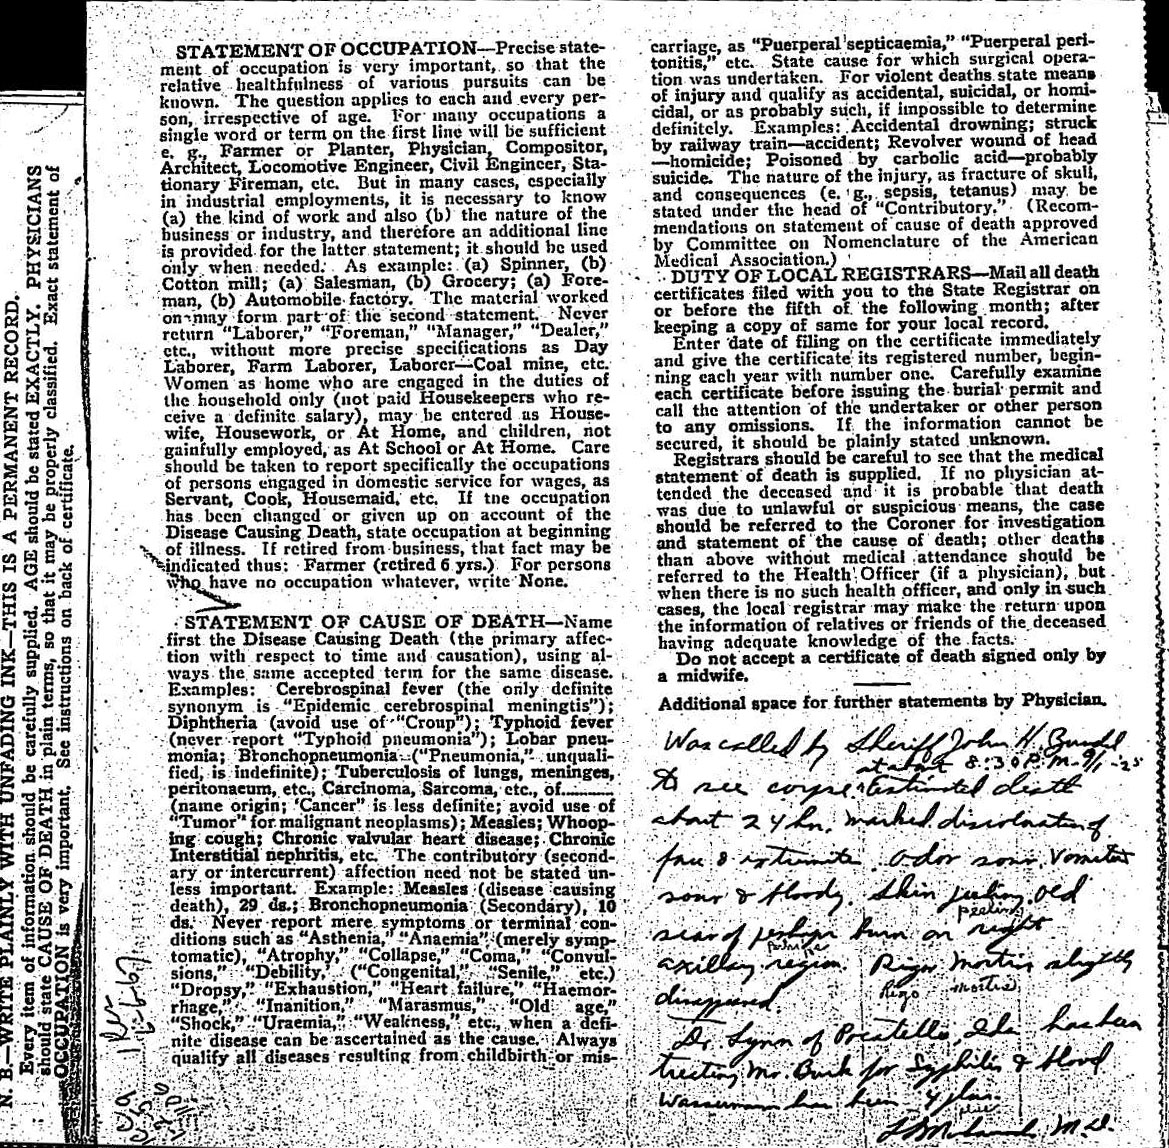 N. B.—WRITE PLAINLY WITH UNFADING INK—THIS IS A PERMANENT RECORD.
Every item of information should be carefully supplied. AGE should be stated EXACTLY. PHYSICIANS
should state CAUSE OF DEATH in plain terms, so that it may be properly classified. Exact statement of
OCCUPATION is very important. See instructions on back of certificate.
STATEMENT OF OCCUPATION—Precise state-
ment of occupation is very important, so that the
relative healthfulness of various pursuits can be
known. The question applies to each and every per-
son, irrespective of age. For many occupations a
single word or term on the first line will be sufficient
e. g., Farmer or Planter, Physician, Compositor,
Architect, Locomotive Engineer, Civil Engineer, Sta-
tionary Fireman, etc. But in many cases, especially
in industrial employments, it is necessary to know
(a) the kind of work and also (b) the nature of the
business or industry, and therefore an additional line
is provided for the latter statement; it should be used
only when needed. As example: (a) Spinner, (b)
Cotton mill; (a) Salesman, (b) Grocery; (a) Fore-
man, (b) Automobile factory. The material worked
on may form part of the second statement. Never
return "Laborer," "Foreman," "Manager," "Dealer,"
etc., without more precise specifications as Day
Laborer, Farm Laborer, Laborer—Coal mine, etc.
Women as home who are engaged in the duties of
the household only (not paid Housekeepers who re-
ceive a definite salary), may be entered as House-
wife, Housework, or At Home, and children, not
gainfully employed, as At School or At Home. Care
should be taken to report specifically the occupations
of persons engaged in domestic service for wages, as
Servant, Cook, Housemaid, etc. If tne occupation
has been changed or given up on account of the
Disease Causing Death, state occupation at beginning
of illness. If retired from business, that fact may be
indicated thus: Farmer (retired 6 yrs.) For persons
who have no occupation whatever, write None.
STATEMENT OF CAUSE OF DEATH—Name
first the Disease Causing Death (the primary affec-
tion with respect to time and causation), using al-
ways the same accepted term for the same disease.
Examples: Cerebrospinal fever (the only definite
synonym is "Epidemic cerebrospinal meningtis");
Diphtheria (avoid use of "Croup"); Typhoid fever
(never report "Typhoid pneumonia"); Lobar pneu-
monia; Bronchopneumonia ("Pneumonia," unquali-
fied, is indefinite); Tuberculosis of lungs, meninges,
peritonaeum, etc., Carcinoma, Sarcoma, etc., of..........
(name origin; 'Cancer" is less definite; avoid use of
"Tumor" for malignant neoplasms); Measles; Whoop-
ing cough; Chronic valvular heart disease; Chronic
Interstitial nephritis, etc. The contributory (second-
ary or intercurrent) affection need not be stated un-
less important. Example: Measles (disease causing
death), 29 ds.; Bronchopneumonia (Secondary), 10
ds. Never report mere symptoms or terminal con-
ditions such as "Asthenia," "Anaemia" (merely symp-
tomatic), "Atrophy," "Collapse," "Coma," "Convul-
sions," "Debility," ("Congenital," "Senile," etc.)
"Dropsy," "Exhaustion," "Heart failure," "Haemor-
rhage," "Inanition," "Marasmus," "Old age,"
"Shock," "Uraemia," "Weakness," etc., when a defi-
nite disease can be ascertained as the cause. Always
qualify all diseases resulting from childbirth or mis-
carriage, as "Puerperal septicaemia," "Puerperal peri-
tonitis," etc. State cause for which surgical opera-
tion was undertaken. For violent deaths state means
of injury and qualify as accidental, suicidal, or homi-
cidal, or as probably such, if impossible to determine
definitely. Examples: Accidental drowning; struck
by railway train—accident; Revolver wound of head
—homicide; Poisoned by carbolic acid—probably
suicide. The nature of the injury, as fracture of skull,
and consequences (e. g., sepsis, tetanus) may be
stated under the head of "Contributory." (Recom-
mendations on statement of cause of death approved
by Committee on Nomenclature of the American
Medical Association.)
DUTY OF LOCAL REGISTRARS—Mail all death
certificates filed with you to the State Registrar on
or before the fifth of the following month; after
keeping a copy of same for your local record.
Enter date of filing on the certificate immediately
and give the certificate its registered number, begin-
ning each year with number one. Carefully examine
each certificate before issuing the burial permit and
call the attention of the undertaker or other person
to any omissions. If the information cannot be
secured, it should be plainly stated unknown.
Registrars should be careful to see that the medical
statement of death is supplied. If no physician at-
tended the deceased and it is probable that death
was due to unlawful or suspicious means, the case
should be referred to the Coroner for investigation
and statement of the cause of death; other deaths
than above without medical attendance should be
referred to the Health Officer (if a physician), but
when there is no such health officer, and only in such
cases, the local registrar may make the return upon
the information of relatives or friends of the deceased
having adequate knowledge of the facts.
Do not accept a certificate of death signed only by
a midwife.
Additional space for further statements by Physician.
Was called by Sheriff John H.
at about 8:30 P.M. 9/1-25
to see corpse estimated death
about 24 hr. marked discoloration of
face & Odor sour. Vomitus
sour & bloody. Skin peeling. Old
peeling
scar of perhaps burn on right
axillary region. Rigor Mortis slightly
Rigo mortis
disappeared
Dr. Lynn of Pocatello, Ida has been
treating Mr. Burk for Syphilis & blood
Wasserman has been 4 plus.
plus
M.D.